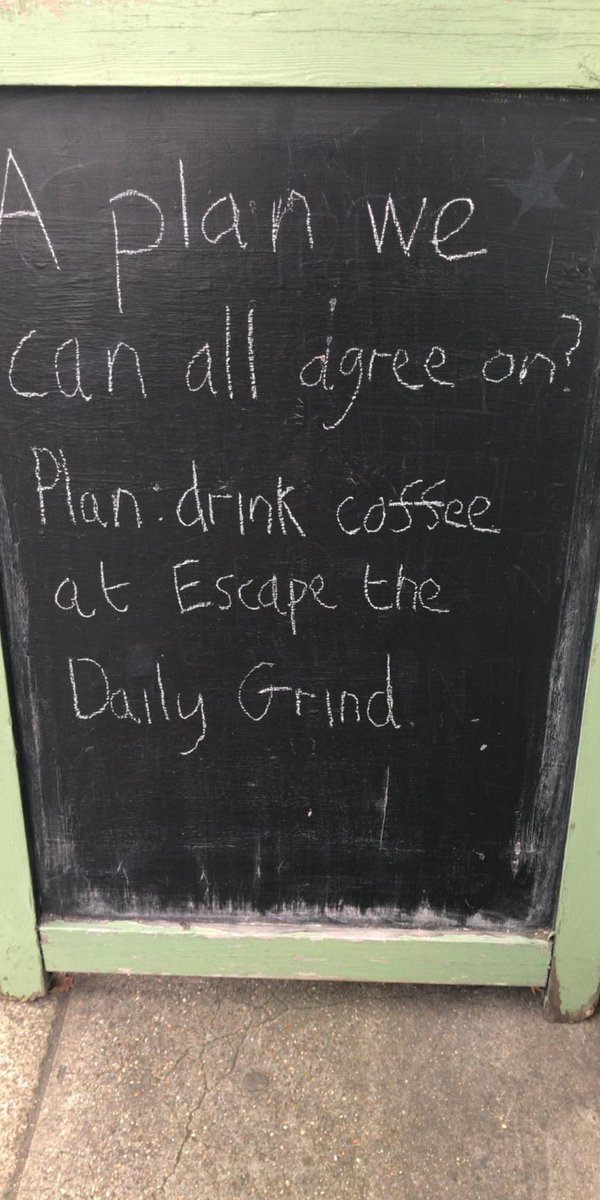 A plan we
can all agree on?
Plan: drink coffee
at Escape the
Daily Grind.